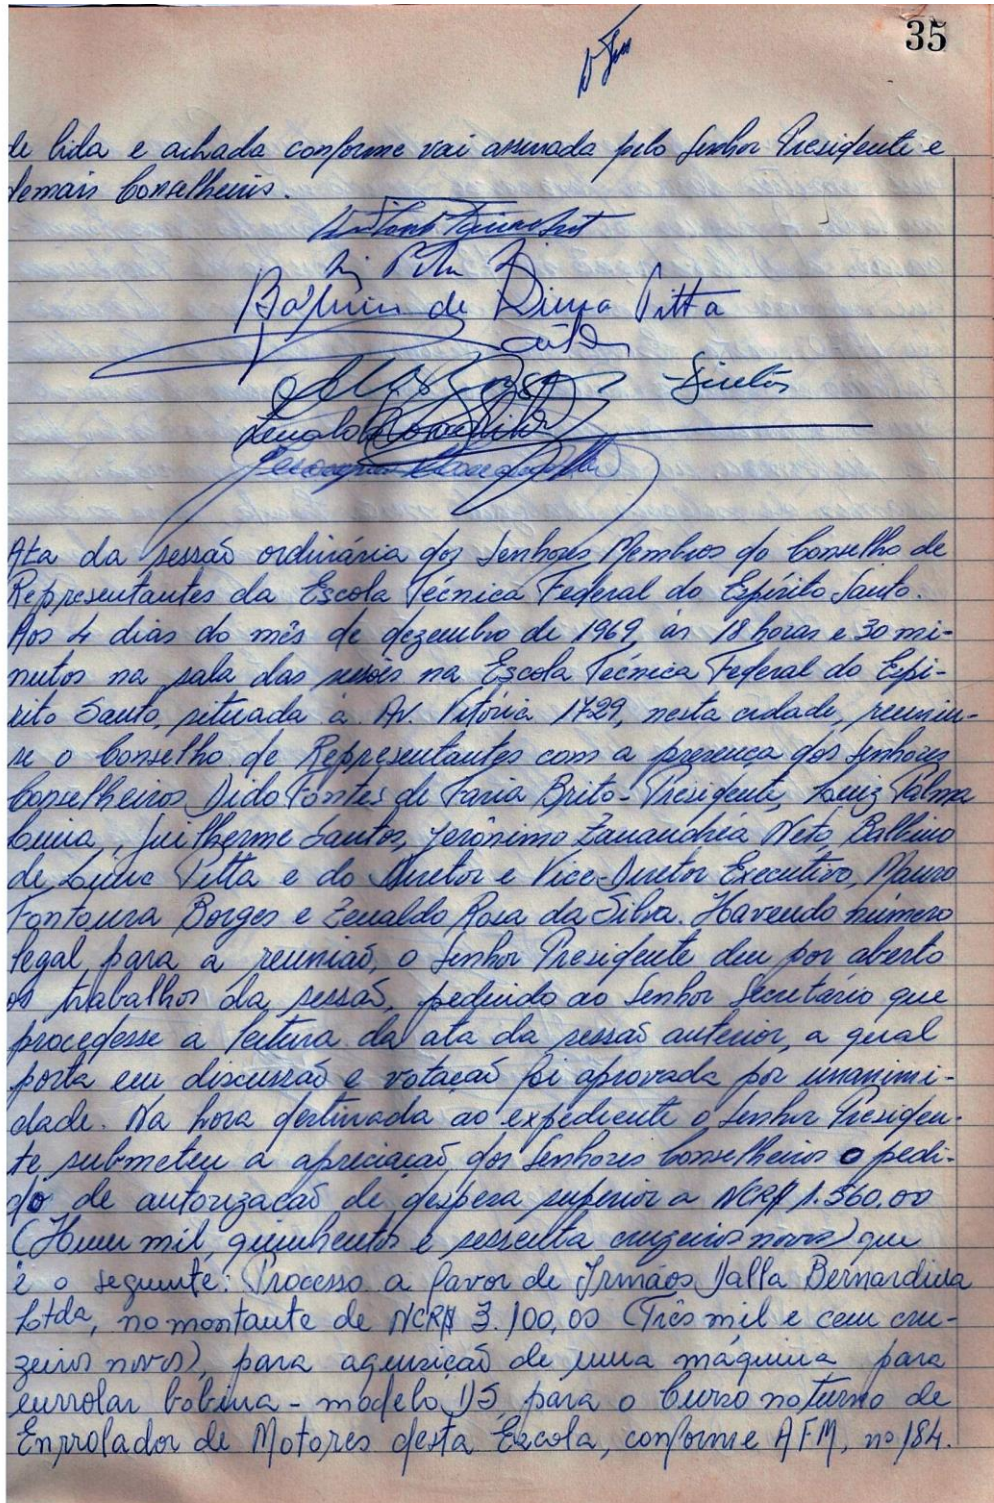 35
de lida e achada conforme vai assinada pelo Senhor Presidente e
demais Conselheiros.
de Lima Pitta
Diretor
Zenaldo Rosa da Silva
Ata da sessão ordinária dos Senhores Membros do Conselho de
Representantes da Escola Técnica Federal do Espírito Santo.
Aos 4 dias do mês de dezembro de 1969, às 18 horas e 30 mi-
nutos na sala das sessões na Escola Técnica Federal do Espí-
rito Santo, situada à Av. Vitória 1729, nesta cidade, reuniu-
se o Conselho de Representantes com a presença dos Senhores
Conselheiros, Dido Fontes de Faria Brito - Presidente, Luiz Palma
Lima, Guilherme Santos, Jerônimo Zanandréa Neto, Balbino
de Lima Pitta e do Diretor e Vice-Diretor Executivo, Mauro
Fontoura Borges e Zenaldo Rosa da Silva. Havendo número
legal para a reunião, o Senhor Presidente deu por aberto
os trabalhos da sessão, pedindo ao Senhor Secretário que
procedesse a leitura da ata da sessão anterior, a qual
posta em discussão e votação foi aprovada por unanimi-
dade. Na hora destinada ao expediente o Senhor Presiden-
te submeteu a apreciação dos Senhores Conselheiros o pedi-
do de autorização de despesa superior a NCR$ 1.560,00
(Hum mil, quinhentos e sessenta cruzeiros novos) que
é o seguinte: Processo a favor de Irmãos Dalla Bernardina
Ltda, no montante de NCR$ 3.100,00 (Três mil e cem cru-
zeiros novos), para aquisição de uma máquina para
enrolar bobina - modelo D5, para o Curso noturno de
Enrolador de Motores desta Escola, conforme AFM, nº 184.